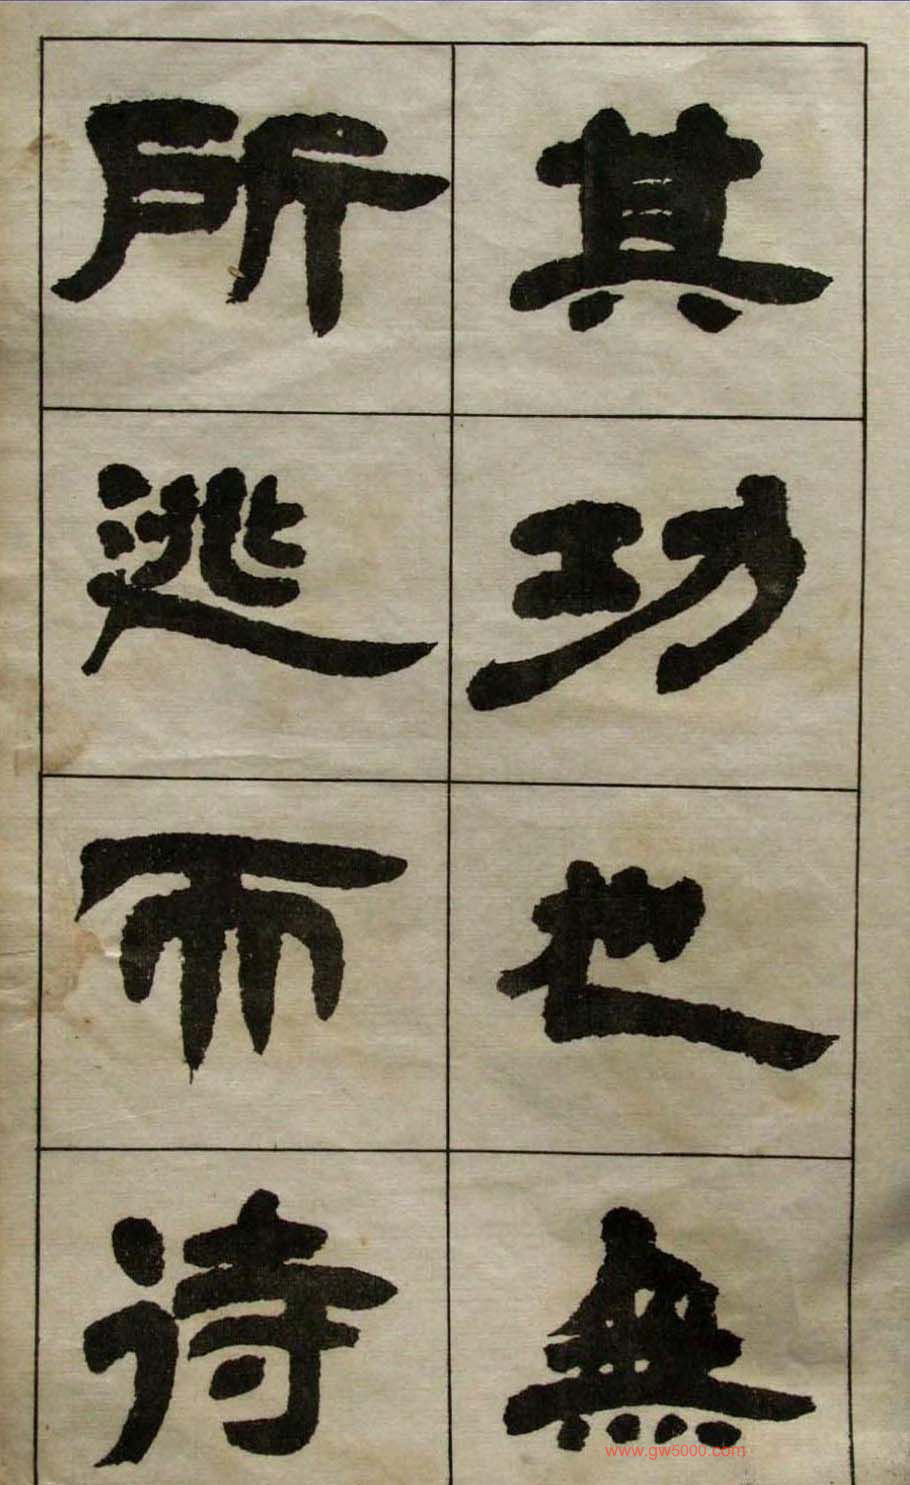 其功也無
所逃而待
www.gw5000.com